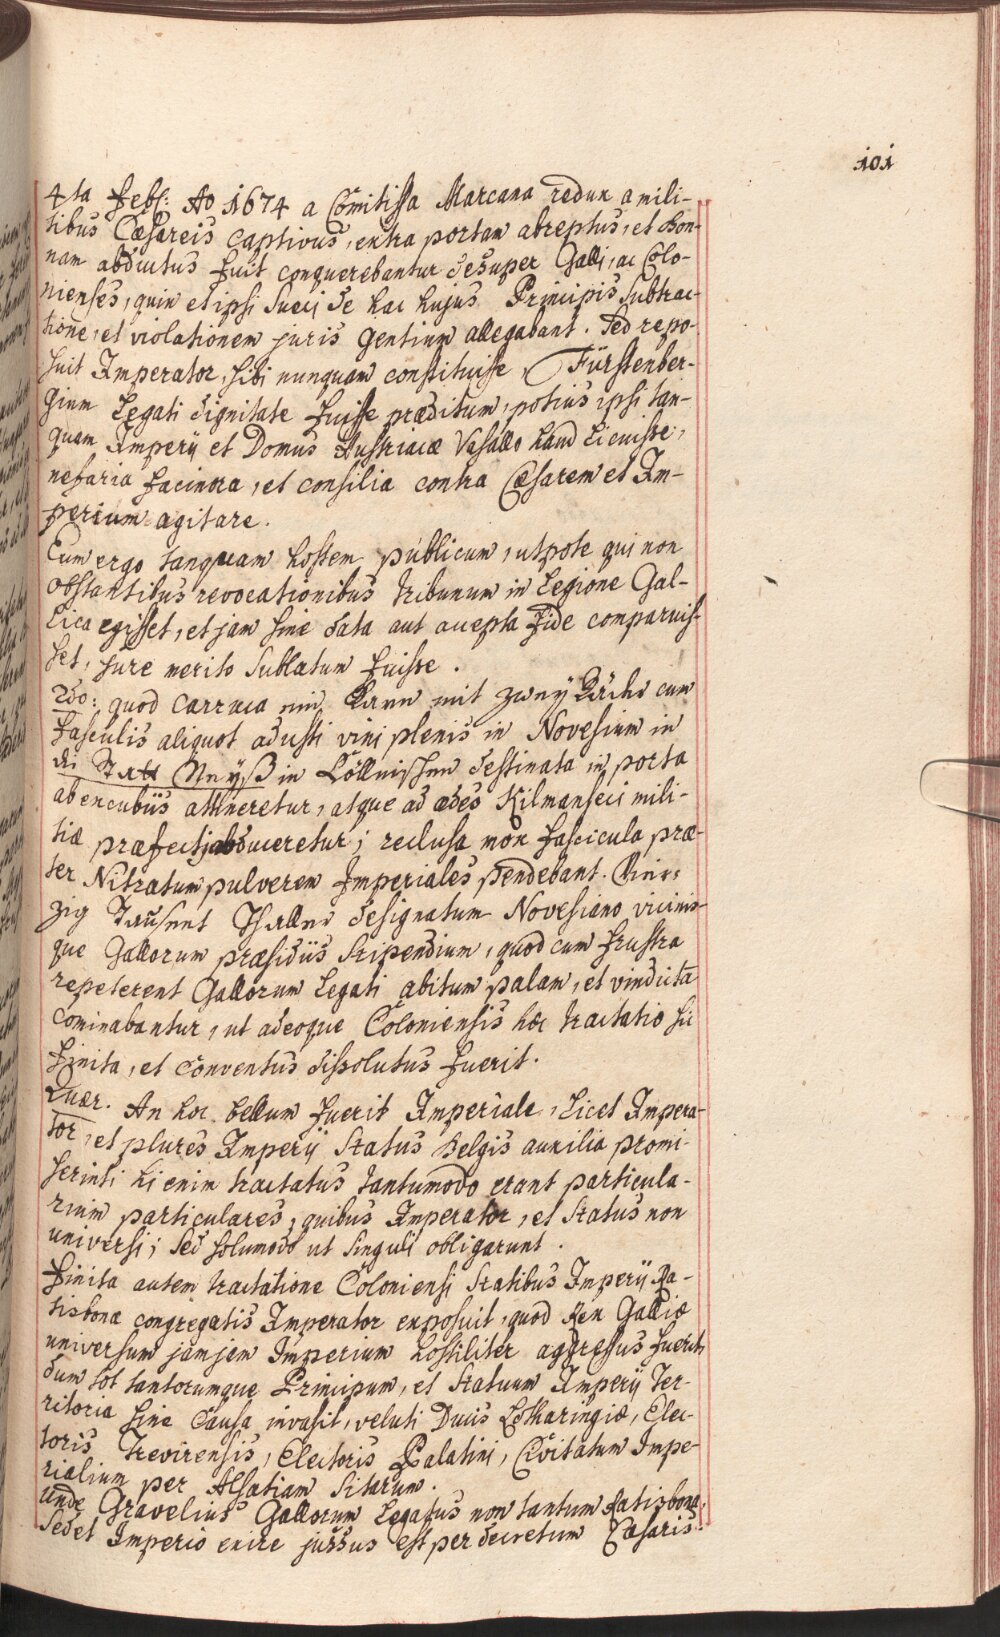 101
4ta Feb: Ao 1674 a Comitissa Marcana redux a mili-
tibus Cæsareis captivus, extra portam abreptus, et Bon-
nam abductus fuit conquerebantur desuper Galli, ac Colo-
nienses, quin et ipsi Sueci de hac hujus Principis subtrac-
tione, et violationem juris Gentium allegabant. Sed repo-
suit Imperator, sibi nunquam constitisse, Fürstenber-
gium Legati dignitate fuisse præditum, potius ipsi tan-
quam Imperij et Domus Austriacæ Vasallo haud licuisse,
nefaria facinora, et consilia contra Cæsarem et Im-
perium agitare.
Eum ergo tanquam hostem publicum, utpote qui non
obstantibus revocationibus tribunum in Legione Gal-
lica egisset, et jam sine data aut accepta fide comparuis-
set, jure merito sublatum fuisse.
2do: quod carruca ein Karn mit zwey Räder cum
fasculis aliquot adusti vini plenis in Novesium in
die Statt Neyß in Cöllnischen destinata in porta
ab excubiis attineretur, atque ad ædes Kilmanseci mili-
tiæ præfecti abduceretur; reclusa mox fascicula præ-
ter Nitratum pulverem Imperiales pendebant. Vier-
zig Tausent Thaller designatum Novesiano vicinis-
que Gallorum præsidiis stipendium, quod cum frustra
repeterent Gallorum Legati abitum palam, et vindicta
cominabantur, ut adeoque Coloniensis hæc tractatio sic
finita, et conventus dissolutus fuerit.
Quær. An hoc bellum fuerit Imperiale, licet Impera-
tor, et plures Imperij Status Belgis auxilia promi-
serint; hi enim tractatus tantumodo erant particula-
rium particulares, quibus Imperator, et Status non
universi; sed solumodo ut singuli obligarunt.
Finita autem tractatione Coloniensi Statibus Imperij Ra-
tisbonæ congregatis Imperator exposuit, quod Rex Galliæ
universum jamjem Imperium hostiliter aggressus fuerit,
dum tot tantorumque Principum, et Statuum Imperij Ter-
ritoria sine causa invasit, veluti Ducis Lotharingiæ, Elec-
toris Trevirensis, Electoris Palatini, Civitatum Impe-
rialium per Alsatiam sitarum.
Unde Gravelius Gallorum Legatus non tantum Ratisbona,
sed et Imperio exire jussus est per decretum Cæsaris.